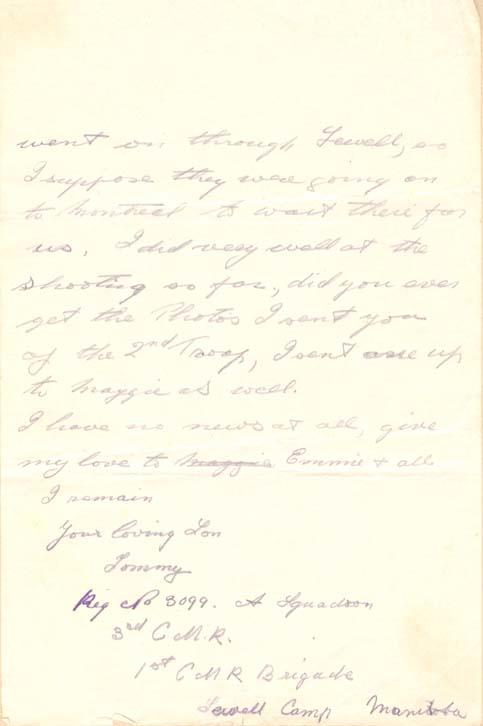 went on through Sewell, so
I suppose they were going on
to Montreal to wait there for
us, I did very well at the
shooting so far, did you ever
get the Photos I sent you
of the 2nd Troop, I sent one up
to Maggie as well.
I have no news at all, give
my love to Maggie Emmie + all
I remain
Your loving Son
Tommy
Reg No 3099. A Squadron
3rd C M. R.
1st C M R Brigade
Sewell Camp Manitoba